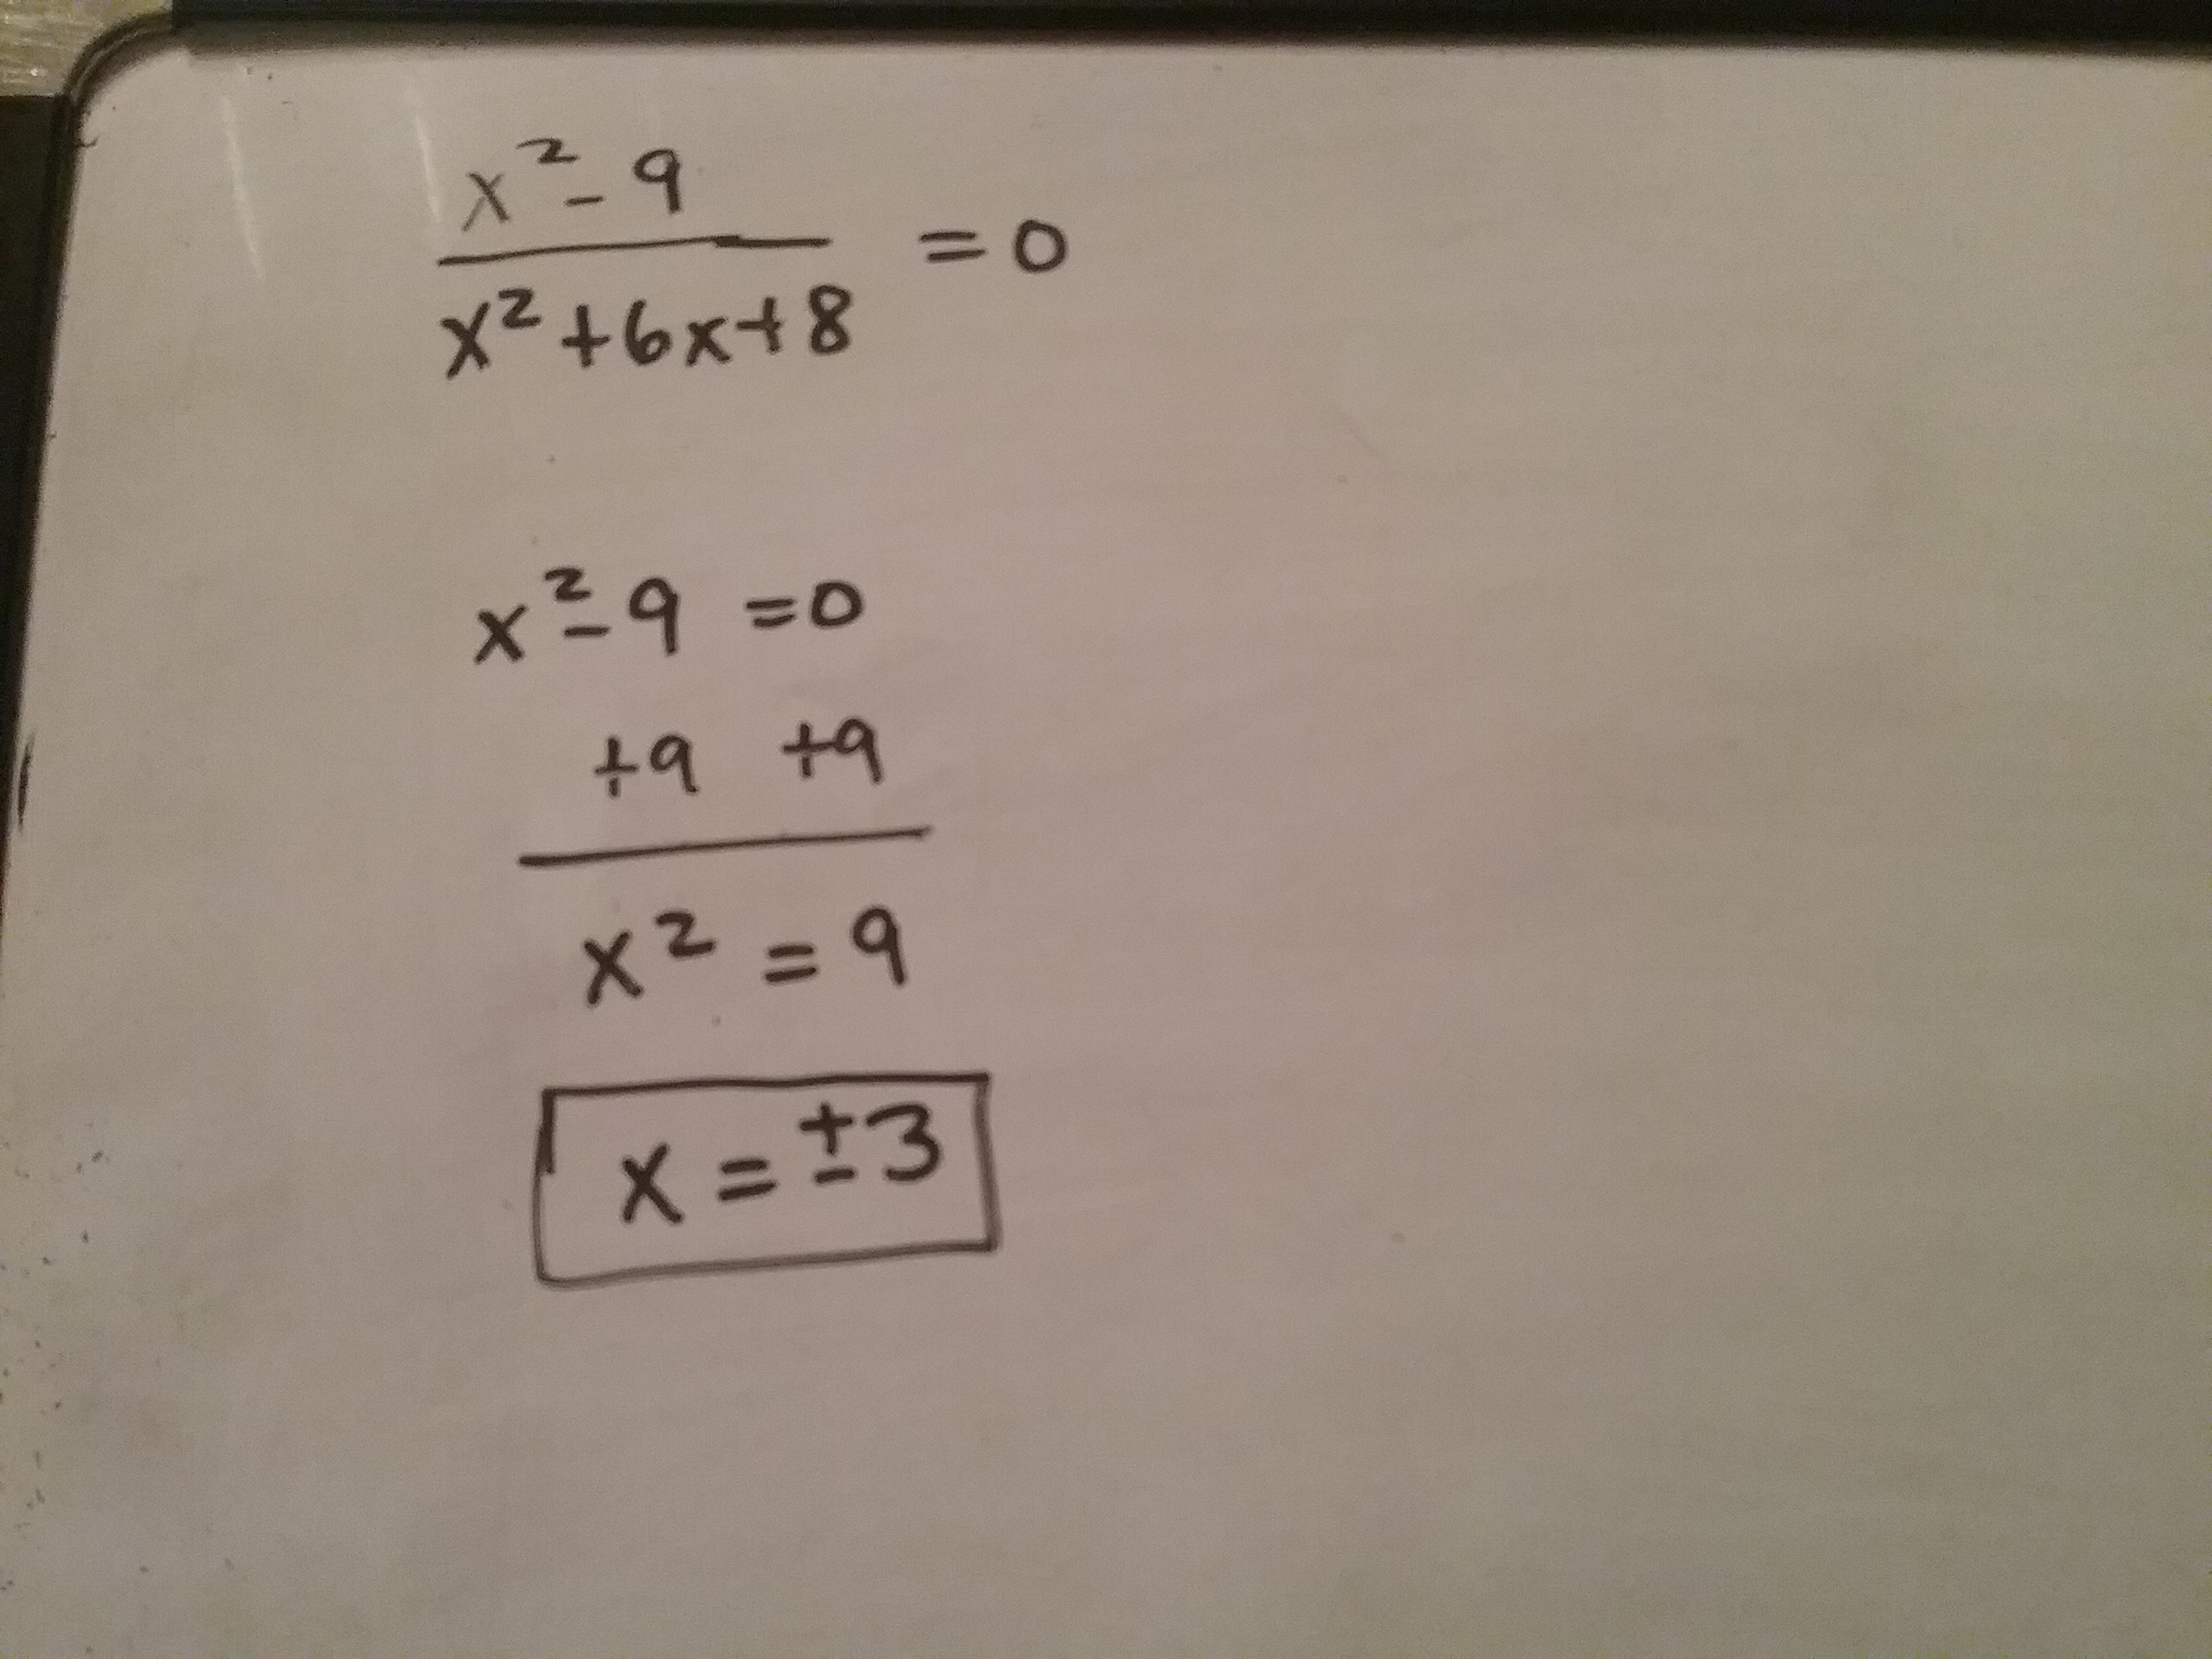 x² - 9
x² + 6x + 8 = 0
x² - 9 = 0
+9 +9
x² = 9
x = ±3